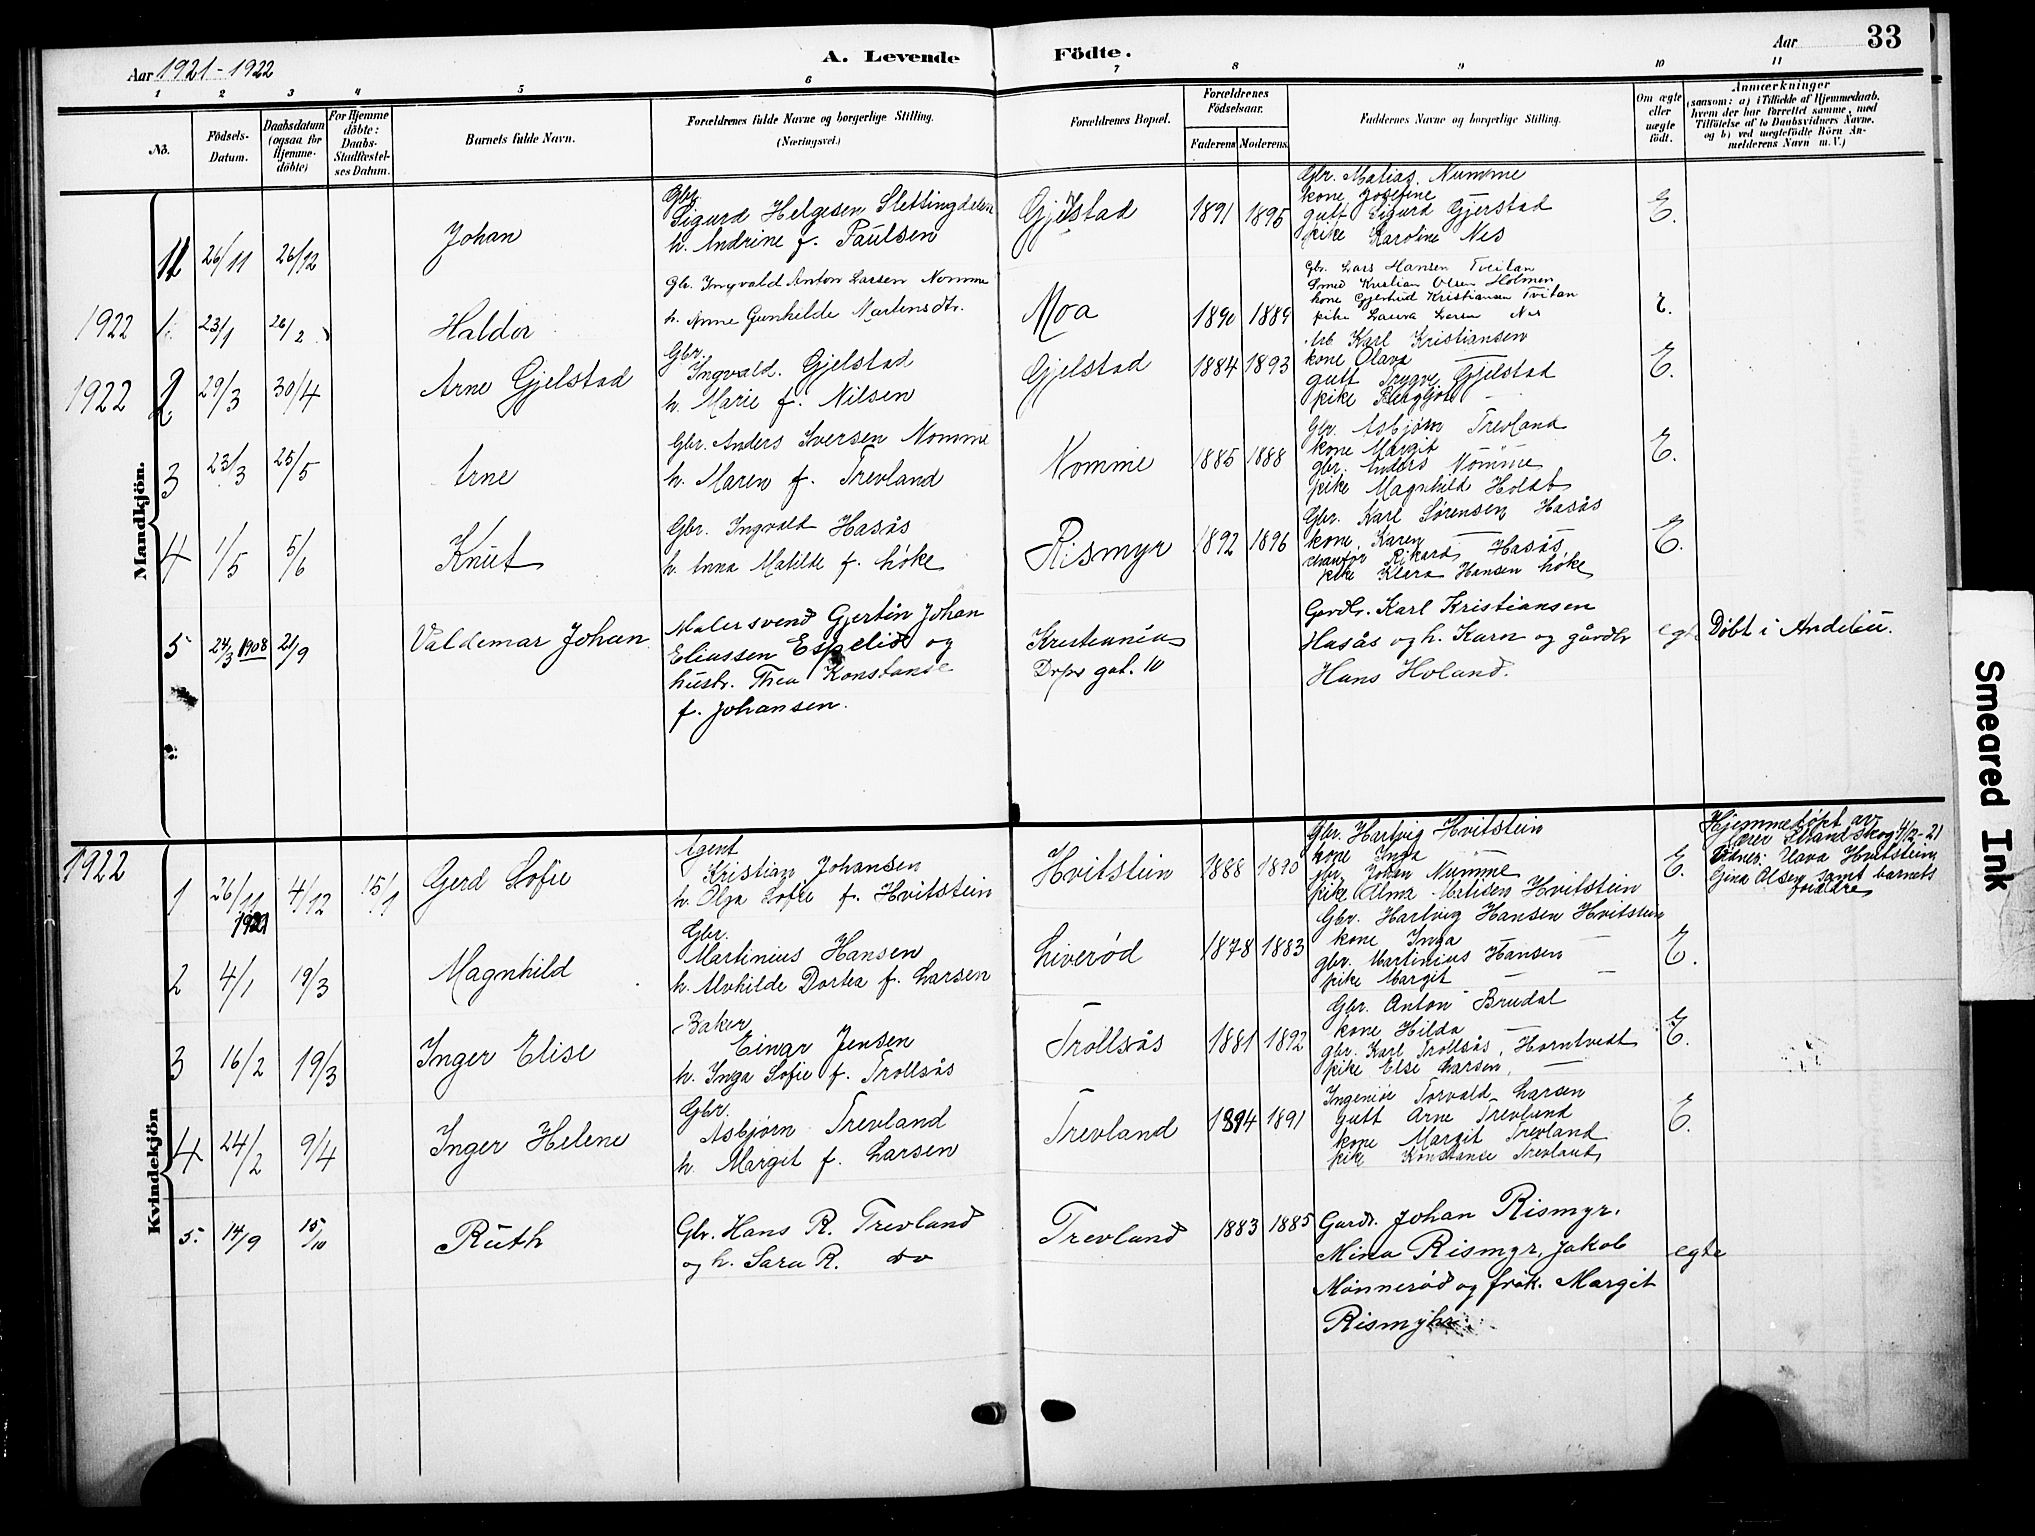 Aar 1921-1922
A. Levende Födte.
Aar
33
1 2 3 4 5 6 7 8 9 10 11
No.
Födsels-Datum.
Daabsdatum (ogsaa for Hjemme-döbte)
For Hjemme döbte: Daabs-Stadfæstel-ses Datum.
Barnets fulde Navn.
Forældrenes fulde Navne og borgerlige Stilling.
(Næringsvei.)
Forældrenes Bopæl.
Forældrenes Födselsaar.
Faderens Moderens
Faddernes Navne og borgerlige Stilling.
Om ægte eller uægte födt.
Anmærkninger
(saasom: a) i Tilfælde af Hjemmedaab, hvem der har forrettet samme, med Tilföielse af to Daabsvidners Navne, og b) ved uegtefödte Börn An-melderens Navn m. V.)
Mandkjön.
11 26/11 26/12 Johan
Gbr. Sigurd Helgesen Slettingdalen
h. Andrine f. Paulsen
Gjelstad 1891 1895
Gbr. Matias Numme
kone Josefine
gutt Sigurd Gjerstad
pike Karoline Nes
E.
1922 1. 23/1 26/2 Haldor
Gbr. Ingvald Anton Larsen Nomme
h. Anne Gunhilde Martensdtr.
Moa 1890 1889
Gbr. Lars Hansen Tveitan
Smed Kristian Olsen Holmen
kone Gjertrud Kristiansen Tvitan
pike Laura Larsen Nes
E.
1922 2 29/3 30/4 Arne Gjelstad
Gbr. Ingvald Gjelstad
h. Marie f. Nilsen
Gjelstad 1884 1893
Arb Karl Kristiansen
kone Olava —
gutt Trygve Gjelstad
pike Bergljot —
E.
3 23/3 25/5 Arne
Gbr. Anders Iversen Nomme
h. Maren f. Trevland
Nomme 1885 1888
Gbr. Asbjørn Trevland
kone Margit —
gbr. Anders Nomme
pike Magnhild Holdt
E.
4 1/5 5/6 Knut
Gbr. Ingvald Hasås
h. Anna Matilde f. Høke
Rismyr 1892 1896
Gbr. Karl Sørensen Hasås
kone Karen —
chauffør Rikard Hasås
pike Klara Hansen Høke
E.
5 24/3 1908 21/9 Valdemar Johan
Malersvend Gjertin Johan
Eliassen Espelid og
hustr. Thea Konstanse
f. Johansen.
Kristiania
gat. 10
Gardbr. Karl Kristiansen
Hasås og h. Karen og gårdbr
Hans Holand.
egte Döbt i Andebu.
Kvindekjön
1922 1 26/11 1921 4/12 15/1 Gerd Sofie
Agent
Kristian Johansen
h. Olga Sofie f. Hvitstein
Hvitstein 1888 1890
Gbr. Hartvig Hvitstein
kone Inga —
gbr. Johan Numme
pike Alma Matisen Hvitstein
E.
Hjemmedøpt av
lærer Strandskog 4/12-21
Vidner: Olava Hvitstein
Gina Olsen samt barnets
foreldre
2 4/1 19/3 Magnhild
Gbr.
Martinius Hansen
h. Alvhilde Dortea f. Larsen
Liverød 1878 1883
Gbr. Hartvig Hansen Hvitstein
kone Inga —
gbr. Martinius Hansen
pike Margit — —
E.
3 16/2 19/3 Inger Elise
Baker
Einar Jensen
h. Inga Sofie f. Trollsås
Trollsås 1881 1892
Gbr. Anton Brudal
kone Hilda —
gbr. Karl Trollsås, Horntvedt
pike Else Larsen, —
E.
4 24/2 9/4 Inger Helene
Gbr.
Asbjørn Trevland
h. Margit f. Larsen
Trevland 1894 1891
Ingeniør Torvald Larsen
gutt Arne Trevland
kone Margit Trevland
pike Konstanse Trevland
E.
5. 14/9 15/10 Ruth
Gbr. Hans R. Trevland
og h. Sara R. do
Trevland 1883 1885
Gardb. Johan Rismyr.
Mina Rismyr, Jakob
Mønnerød og frøk. Margit
Rismyhr
egte
Smeared Ink